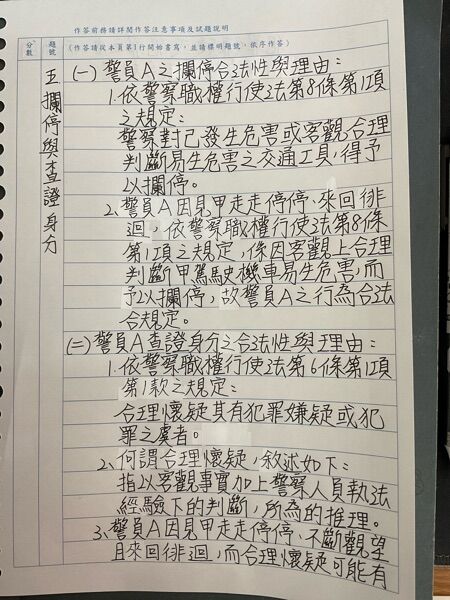 作答前務請詳閱作答注意事項及試題說明
分數
題號
(作答請從本頁第1行開始書寫,並請標明題號,依序作答)
五、攔停與查證身分
(一)警員A之攔停合法性與理由:
1.依警察職權行使法第8條第1項
之規定:
警察對已發生危害或客觀合理
判斷易生危害之交通工具,得予
以攔停。
2.警員A因見甲走走停停、來回徘
迴,依警察職權行使法第8條
第1項之規定,係因客觀上合理
判斷甲駕駛機車易生危害,而
予以攔停,故警員A之行為合法
合規定。
(二)警員A查證身分之合法性與理由:
1.依警察職權行使法第6條第1項
第1款之規定:
合理懷疑其有犯罪嫌疑或犯
罪之虞者。
2.何謂合理懷疑,敘述如下:
指以客觀事實加上警察人員執法
經驗下的判斷,所為的推理。
3.警員A因見甲走走停停、不斷觀望
且來回徘迴,而合理懷疑可能有